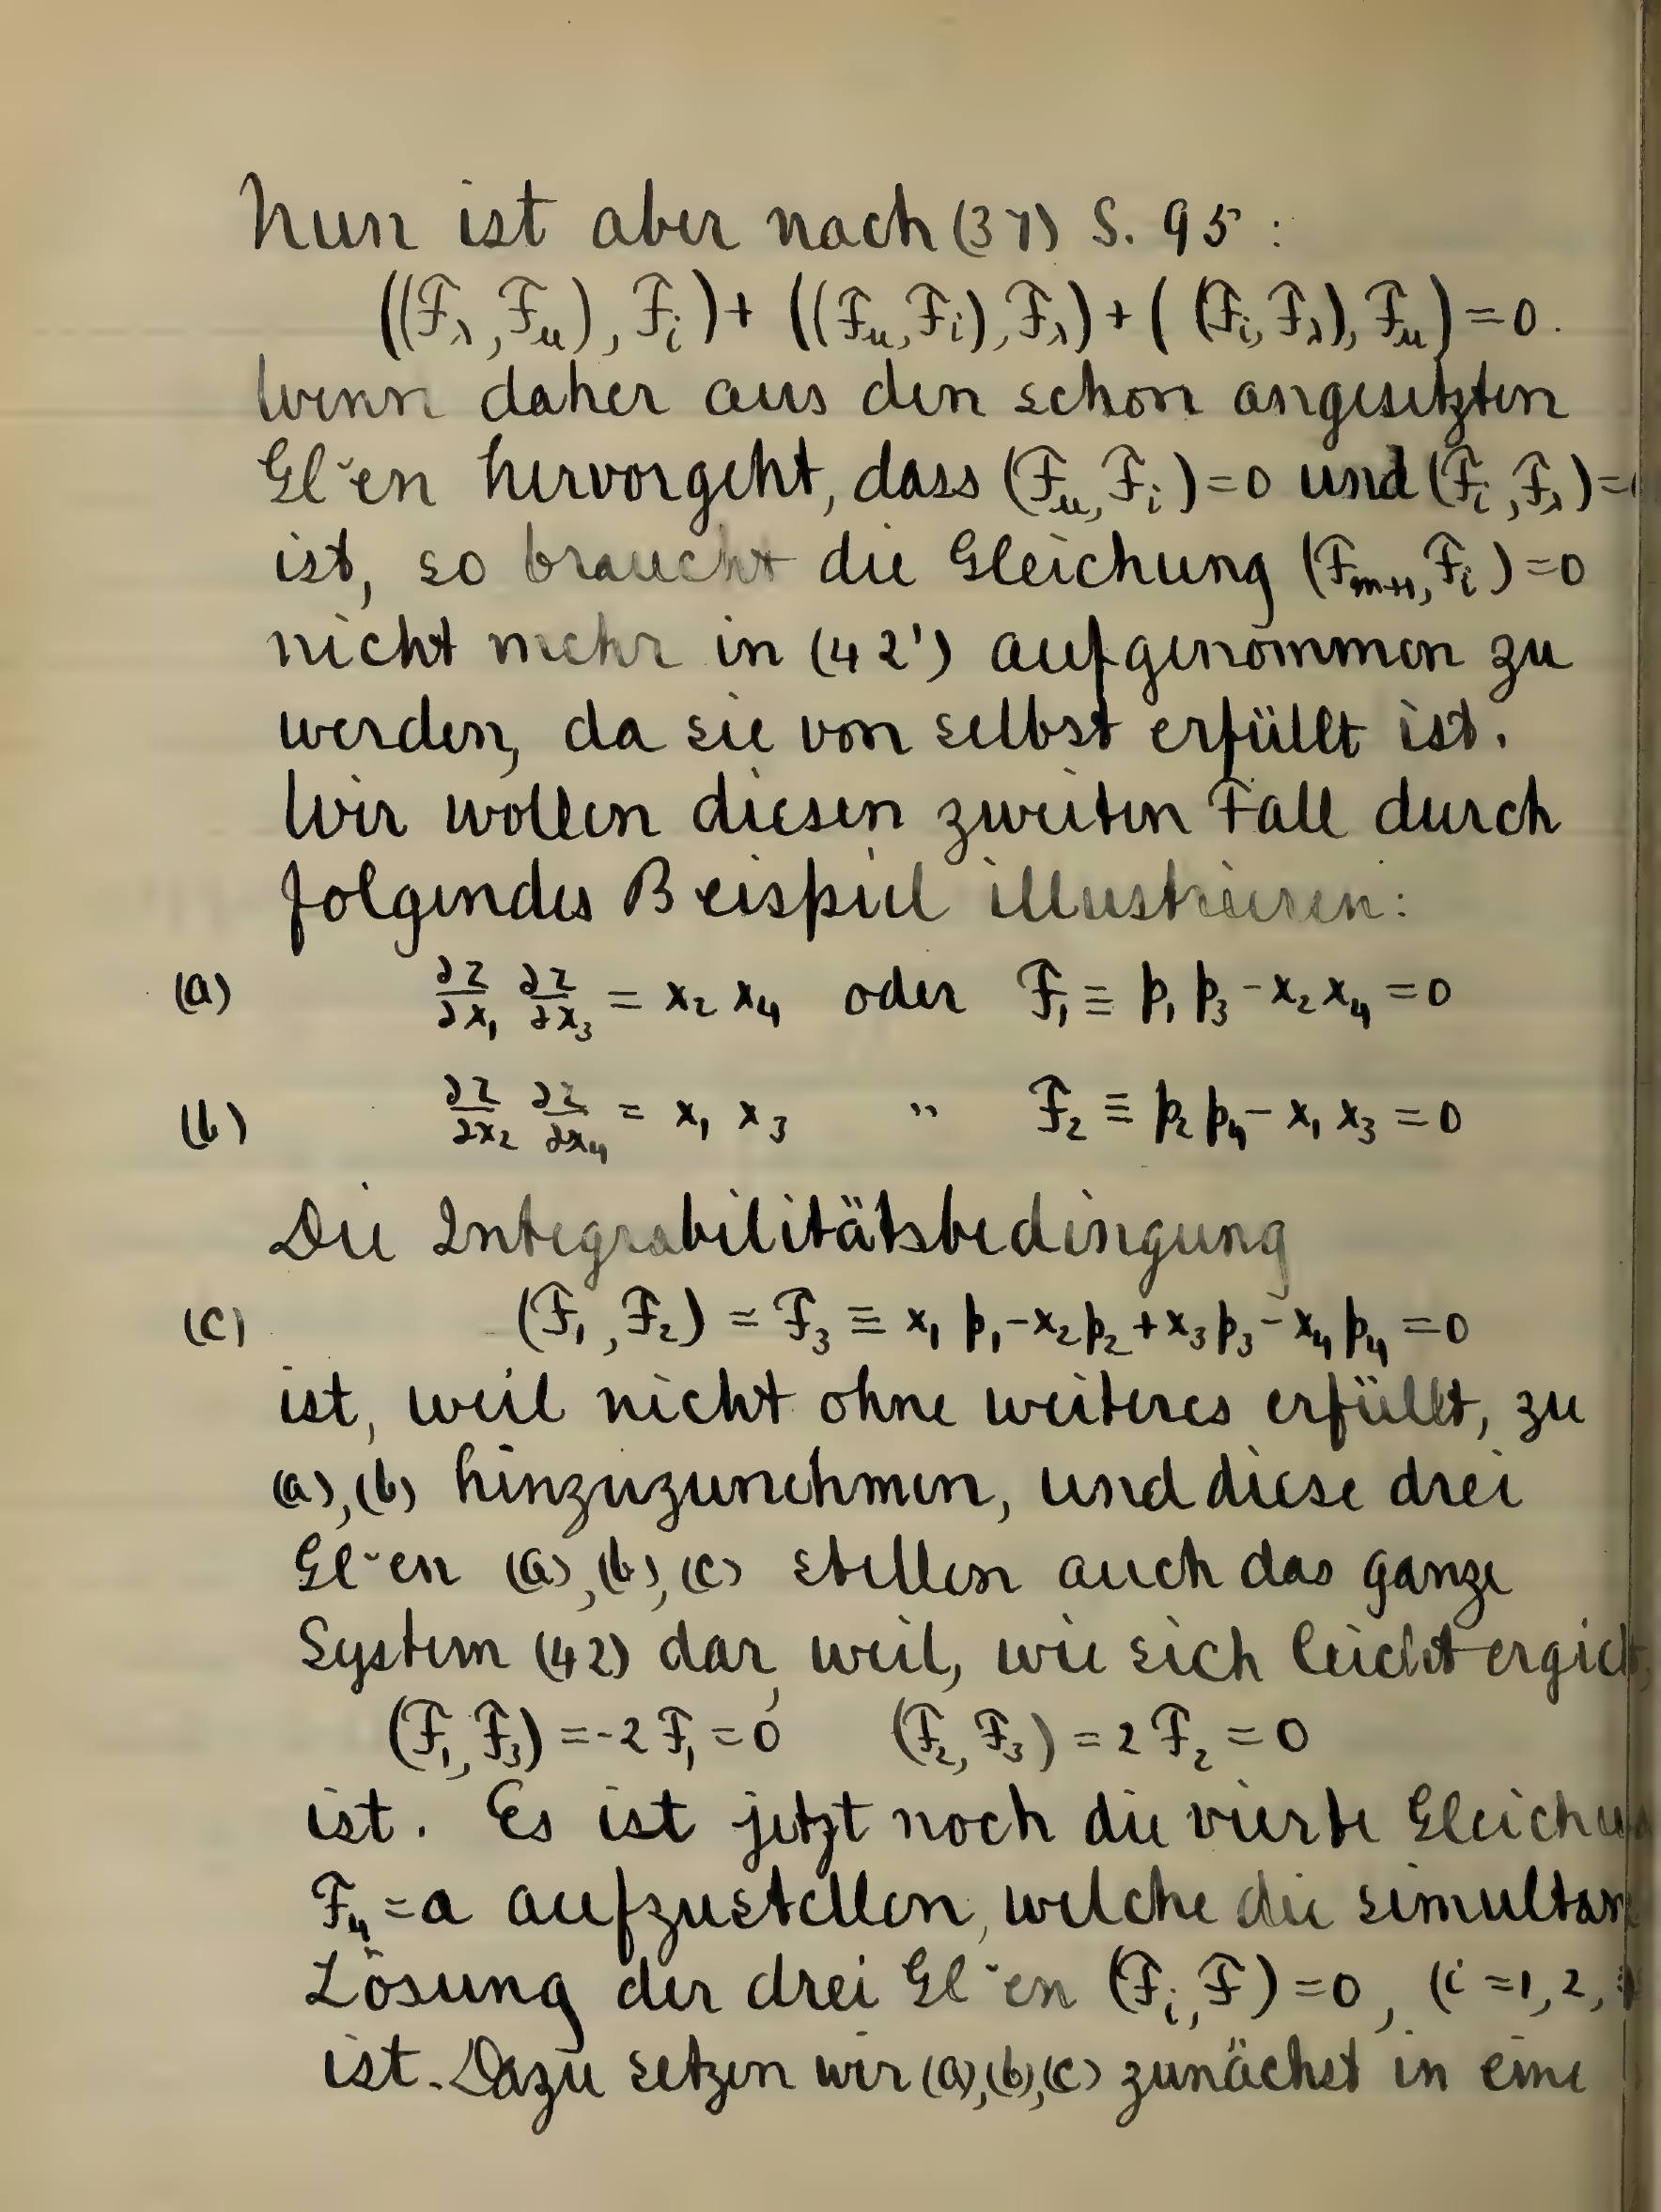 Nun ist aber nach (37) S. 95:
((F_λ, F_μ), F_i) + ((F_μ, F_i), F_λ) + ((F_i, F_λ), F_μ) = 0.
Wenn daher aus den schon angesetzten
Gl˘en hervorgeht, dass (F_μ, F_i) = 0 und (F_i, F_λ) =
ist, so braucht die Gleichung (F_{m+1}, F_i) = 0
nicht mehr in (42') aufgenommen zu
werden, da sie von selbst erfüllt ist.
Wir wollen diesen zweiten Fall durch
folgendes Beispiel illustrieren:
(a) ∂z/∂x₁ ∂z/∂x₃ = x₂ x₄ oder F₁ ≡ p₁ p₃ - x₂ x₄ = 0
(b) ∂z/∂x₂ ∂z/∂x₄ = x₁ x₃ " F₂ ≡ p₂ p₄ - x₁ x₃ = 0
Die Integrabilitätsbedingung
(c) (F₁, F₂) = F₃ ≡ x₁ p₁ - x₂ p₂ + x₃ p₃ - x₄ p₄ = 0
ist, weil nicht ohne weiteres erfüllt, zu
(a), (b) hinzuzunehmen, und diese drei
Gl˘en (a), (b), (c) stellen auch das ganze
System (42) dar, weil, wie sich leicht ergiebt,
(F₁, F₃) = -2 F₁ = 0 (F₂, F₃) = 2 F₂ = 0
ist. Es ist jetzt noch die vierte Gleichung
F₄ = a aufzustellen, welche die simultane
Lösung der drei Gl˘en (F_i, F) = 0, (i = 1, 2,
ist. Dazu setzen wir (a), (b), (c) zunächst in eine